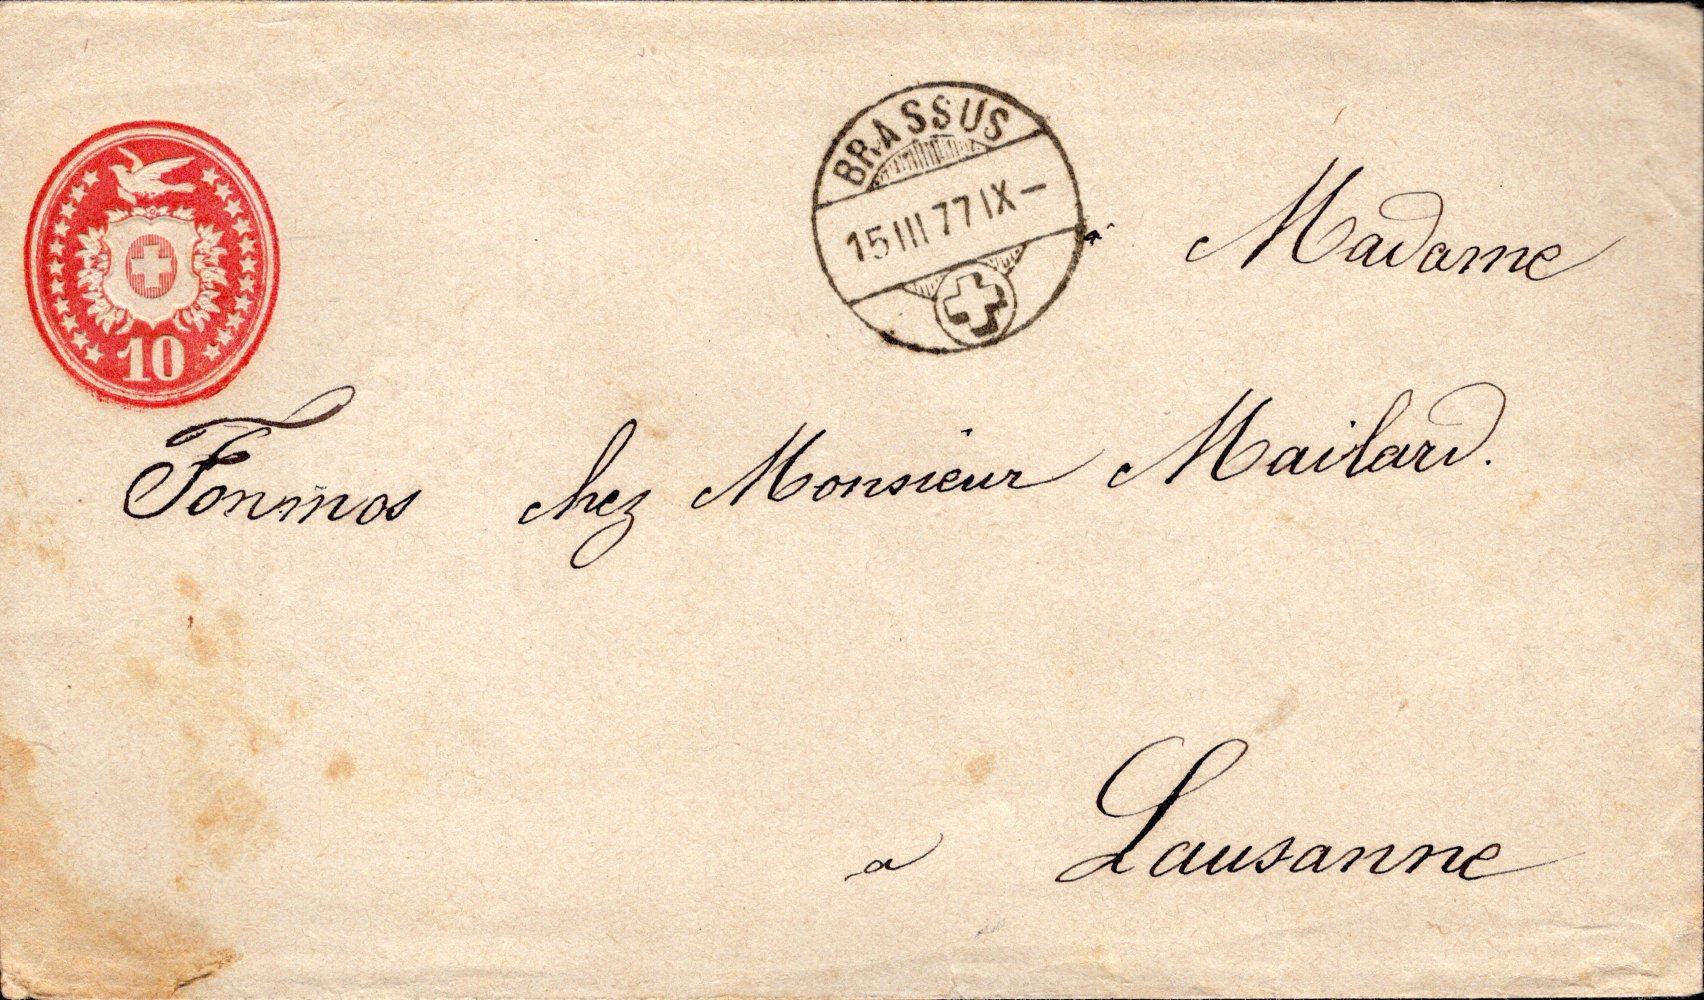 10
BRASSUS
15 III 77 IX –
Madame
Fonmos chez Monsieur Mailard.
a Lausanne